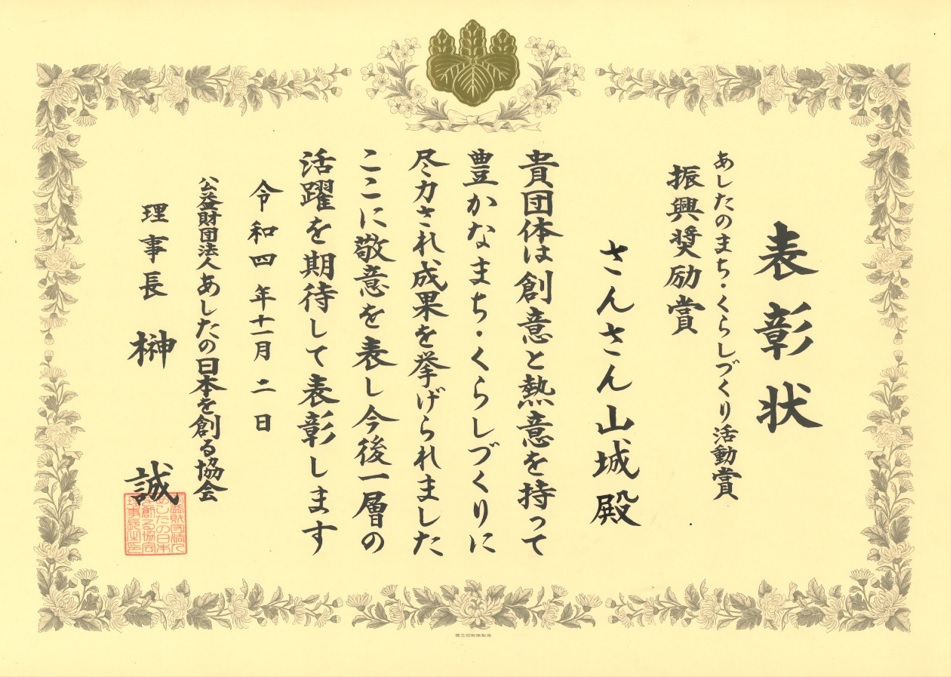 表彰状
あしたのまち・くらしづくり活動賞
振興奨励賞
さんさん山城殿
貴団体は創意と熱意を持って
豊かなまち・くらしづくりに
尽力され成果を挙げられました
ここに敬意を表し今後一層の
活躍を期待して表彰します
令和四年十一月二日
公益財団法人あしたの日本を創る協会
理事長 榊 誠